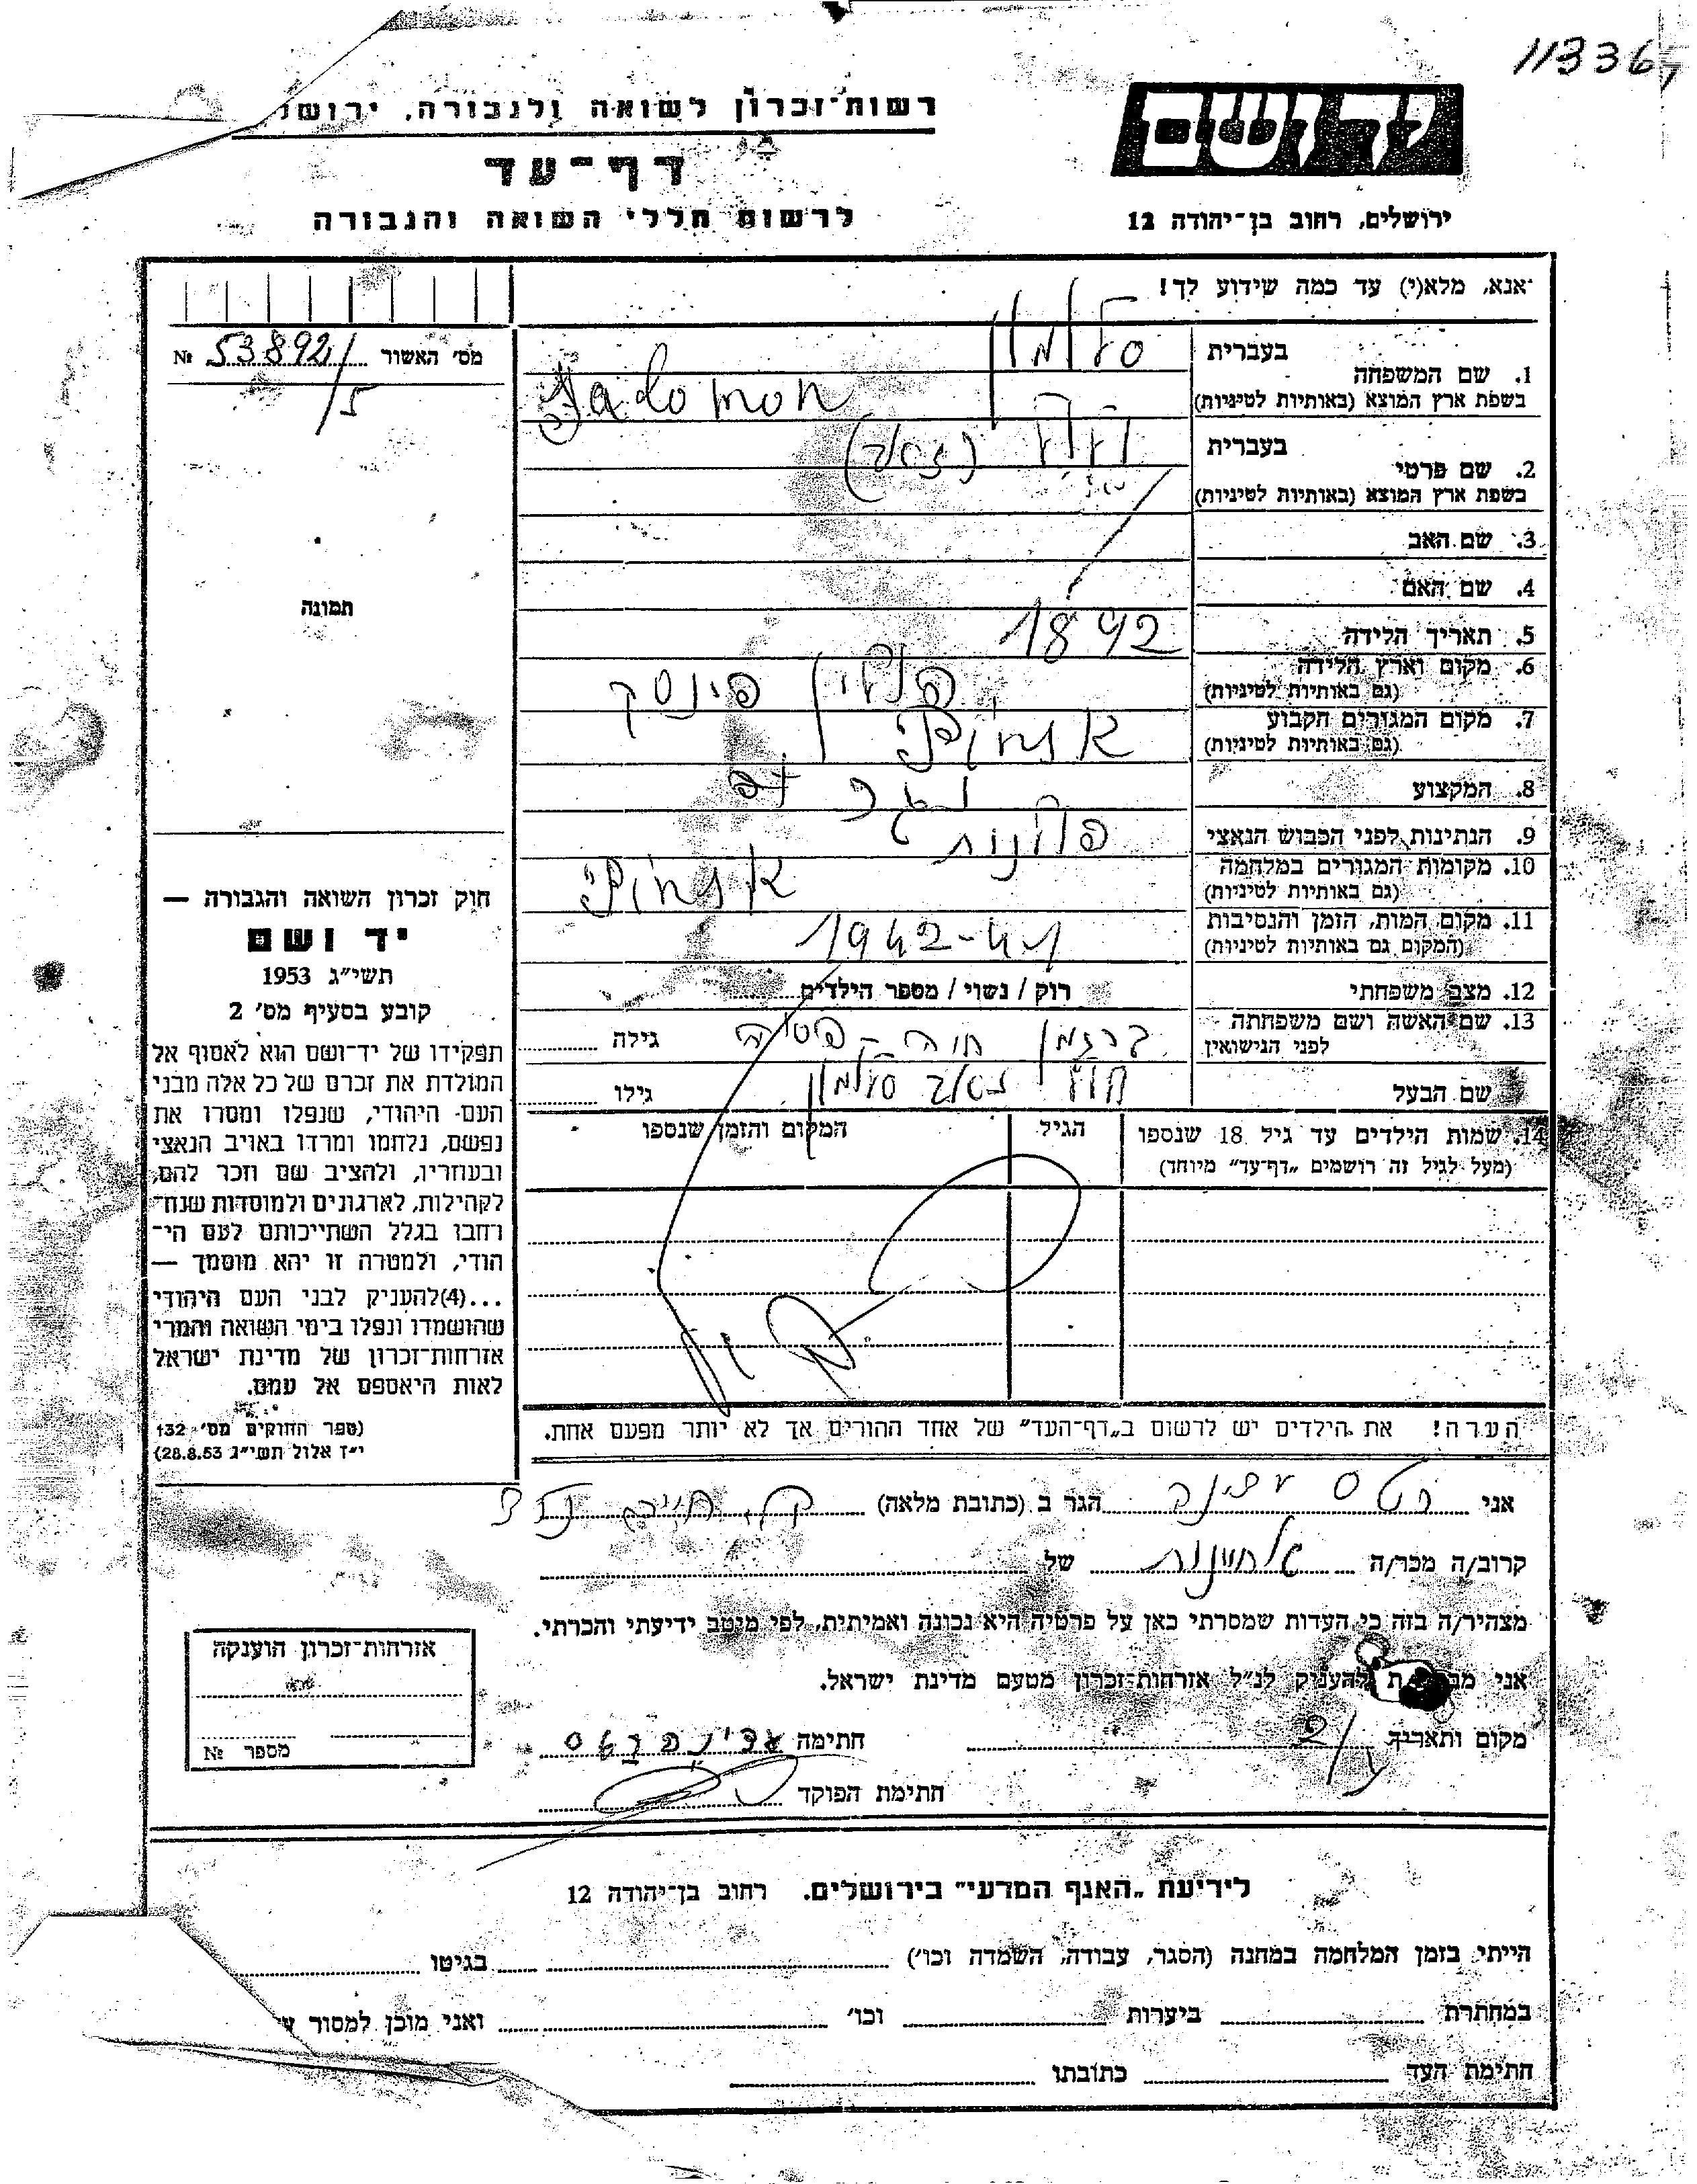 11336
רשות־זכרון לשואה ולגבורה, ירושל
דף־עד
לרשום חללי השואה והגבורה
יד ושם
ירושלים, רחוב בן־יהודה 12
אנא, מלא(י) עד כמה שידוע לך!
מס' האשור 53892 №
/5
תמונה
1. שם המשפחה
בעברית סלומון
בשפת ארץ המוצא (באותיות לטיניות) Salomon
2. שם פרטי
בעברית
בשפת ארץ המוצא (באותיות לטיניות)
3. שם האב
4. שם האם
5. תאריך הלידה 1892
6. מקום וארץ הלידה פולין פינסק
(גם באותיות לטיניות)
7. מקום המגורים הקבוע
(גם באותיות לטיניות)
8. המקצוע
9. הנתינות לפני הכבוש הנאצי פולנית
10. מקומות המגורים במלחמה
(גם באותיות לטיניות)
11. מקום המות, הזמן והנסיבות 1942-41
(המקום גם באותיות לטיניות)
12. מצב משפחתי רוק / נשוי / מספר הילדים
13. שם האשה ושם משפחתה
לפני הנישואין גילה
שם הבעל סלומון גילו
14. שמות הילדים עד גיל 18 שנספו הגיל המקום והזמן שנספו
(מעל לגיל זה רושמים „דף־עד" מיוחד)
הערה! את הילדים יש לרשום ב„דף־העד" של אחד ההורים אך לא יותר מפעם אחת.
חוק זכרון השואה והגבורה —
יד ושם
תשי"ג 1953
קובע בסעיף מס' 2
תפקידו של יד־ושם הוא לאסוף אל
המולדת את זכרם של כל אלה מבני
העם היהודי, שנפלו ומסרו את
נפשם, נלחמו ומרדו באויב הנאצי
ובעוזריו, ולהציב שם וזכר להם,
לקהילות, לארגונים ולמוסדות שנח־
רחבו בגלל השתייכותם לעם הי־
הודי, ולמטרה זו יהא מוסמך —
...(4)להעניק לבני העם היהודי
שהושמדו ונפלו בימי השואה והמרי
אזרחות־זכרון של מדינת ישראל
לאות היאספם אל עמם.
(ספר החוקים מס' 132
י"ז אלול תשי"ג 28.8.53)
אני עדינה הגר ב (כתובת מלאה)
קרוב/ה מכר/ה של
מצהיר/ה בזה כי העדות שמסרתי כאן על פרטיה היא נכונה ואמיתית, לפי מיטב ידיעתי והכרתי.
אני להעניק לנ"ל אזרחות־זכרון מטעם מדינת ישראל.
מקום ותאריך חתימה עדינה
חתימת הפוקד
אזרחות־זכרון הוענקה
מספר №
לידיעת „האגף המדעי" בירושלים. רחוב בן־יהודה 12
הייתי בזמן המלחמה במחנה (הסגר, עבודה, השמדה וכו') בגיטו
במחתרת ביערות וכו' ואני מוכן למסור
חתימת העד כתובתו